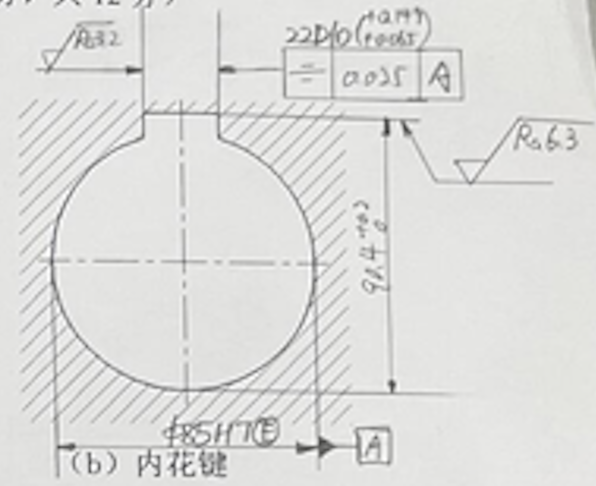 共12分)
Ra3.2
22D10(+0.149 +0.065)
⌯ 0.025 A
Ra6.3
90.4 +0.2 0
φ85H7Ⓔ
A
(b) 内花键